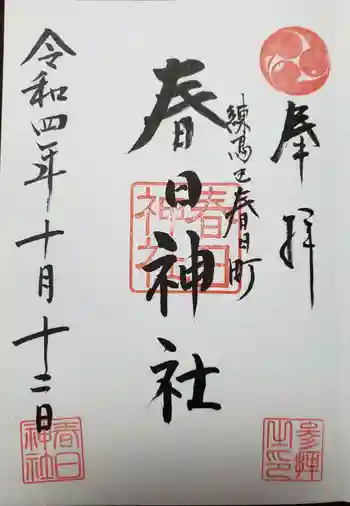 奉拝
練馬区春日町
春日神社
令和四年十月十二日
春日神社
春日神社
参拝之印